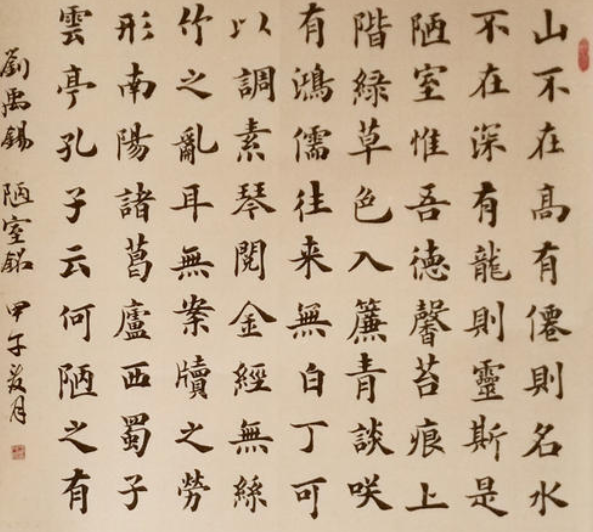 山不在高有僊則名水
不在深有龍則靈斯是
陋室惟吾德馨苔痕上
階緑草色入簾青談咲
有鴻儒往来無白丁可
以調素琴閱金經無絲
竹之亂耳無案牘之勞
形南陽諸葛廬西蜀子
雲亭孔子云何陋之有
劉禹錫 陋室銘 甲午